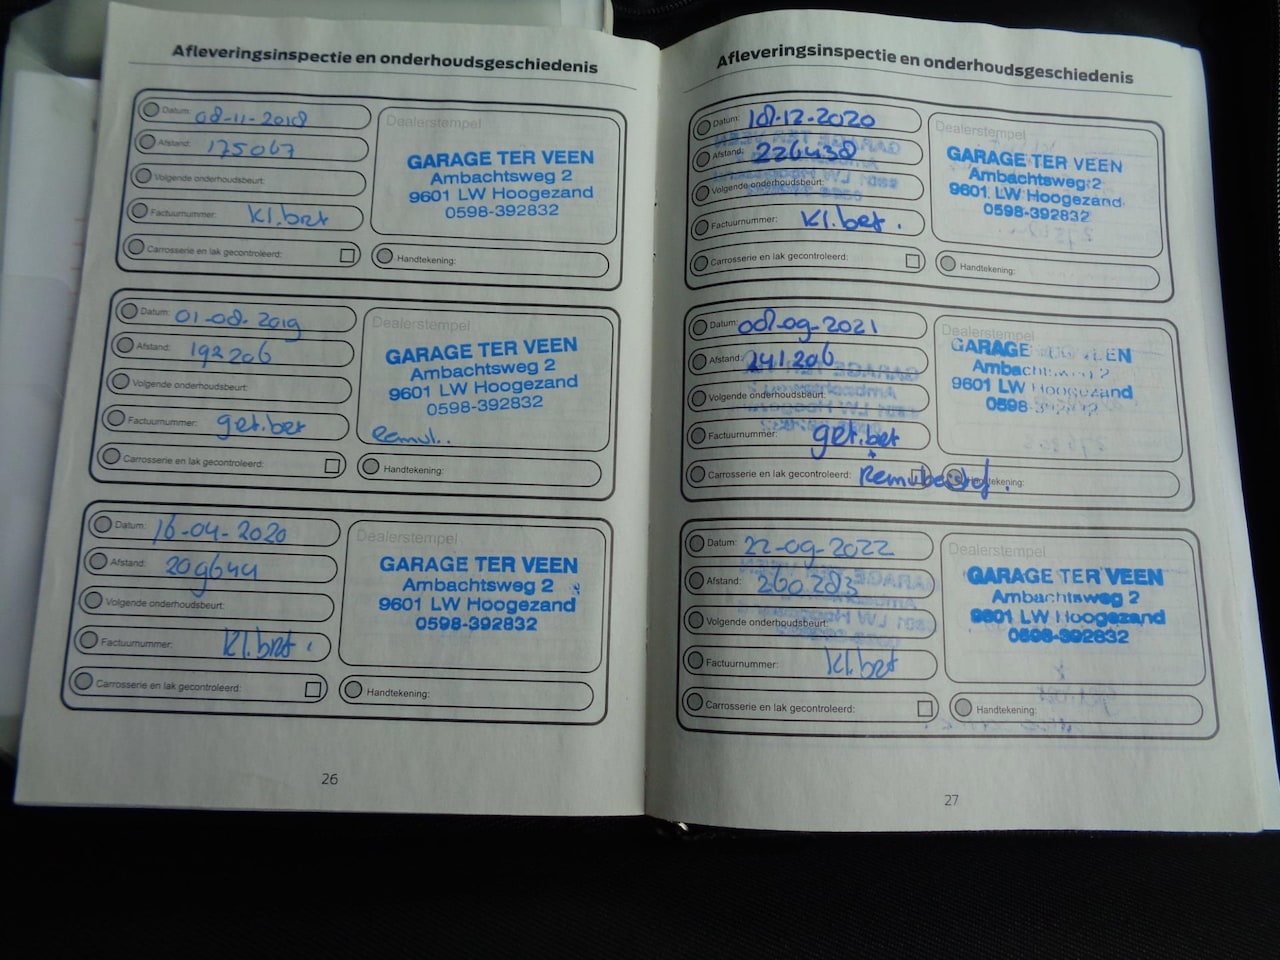 Afleveringsinspectie en onderhoudsgeschiedenis
Datum: 08-11-2018
Afstand: 175067
Volgende onderhoudsbeurt:
Factuurnummer: kl.bet
Carrosserie en lak gecontroleerd:
Dealerstempel
GARAGE TER VEEN
Ambachtsweg 2
9601 LW Hoogezand
0598-392832
Handtekening:
Datum: 01-08-2019
Afstand: 192206
Volgende onderhoudsbeurt:
Factuurnummer: get.bet
Carrosserie en lak gecontroleerd:
Dealerstempel
GARAGE TER VEEN
Ambachtsweg 2
9601 LW Hoogezand
0598-392832
Remvl..
Handtekening:
Datum: 16-04-2020
Afstand: 209644
Volgende onderhoudsbeurt:
Factuurnummer: kl.bet.
Carrosserie en lak gecontroleerd:
Dealerstempel
GARAGE TER VEEN
Ambachtsweg 2
9601 LW Hoogezand
0598-392832
Handtekening:
26
Afleveringsinspectie en onderhoudsgeschiedenis
Datum: 18-12-2020
Afstand: 226438
Volgende onderhoudsbeurt:
Factuurnummer: kl.bet.
Carrosserie en lak gecontroleerd:
Dealerstempel
GARAGE TER VEEN
Ambachtsweg 2
9601 LW Hoogezand
0598-392832
Handtekening:
Datum: 08-09-2021
Afstand: 241.206
Volgende onderhoudsbeurt:
Factuurnummer: get.bet
Carrosserie en lak gecontroleerd:
Dealerstempel
GARAGE TER VEEN
Ambachtsweg 2
9601 LW Hoogezand
0598-392832
Handtekening:
Datum: 22-09-2022
Afstand: 260.283
Volgende onderhoudsbeurt:
Factuurnummer: kl.bet
Carrosserie en lak gecontroleerd:
Dealerstempel
GARAGE TER VEEN
Ambachtsweg 2
9601 LW Hoogezand
0598-392832
Handtekening:
27